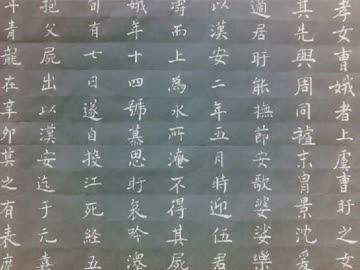 孝女曹娥者上虞曹盱之女
其先與周同末胄景沈爰
適居盱能撫節安歌婆娑樂
以漢安二年五月時迎伍君
濤而上為水所淹不得其屍
娥年十四號慕思盱哀吟澤
旬有七日遂自投江死經五
抱父屍出以漢安迄于元嘉
年青龍在辛卯莫之有表度